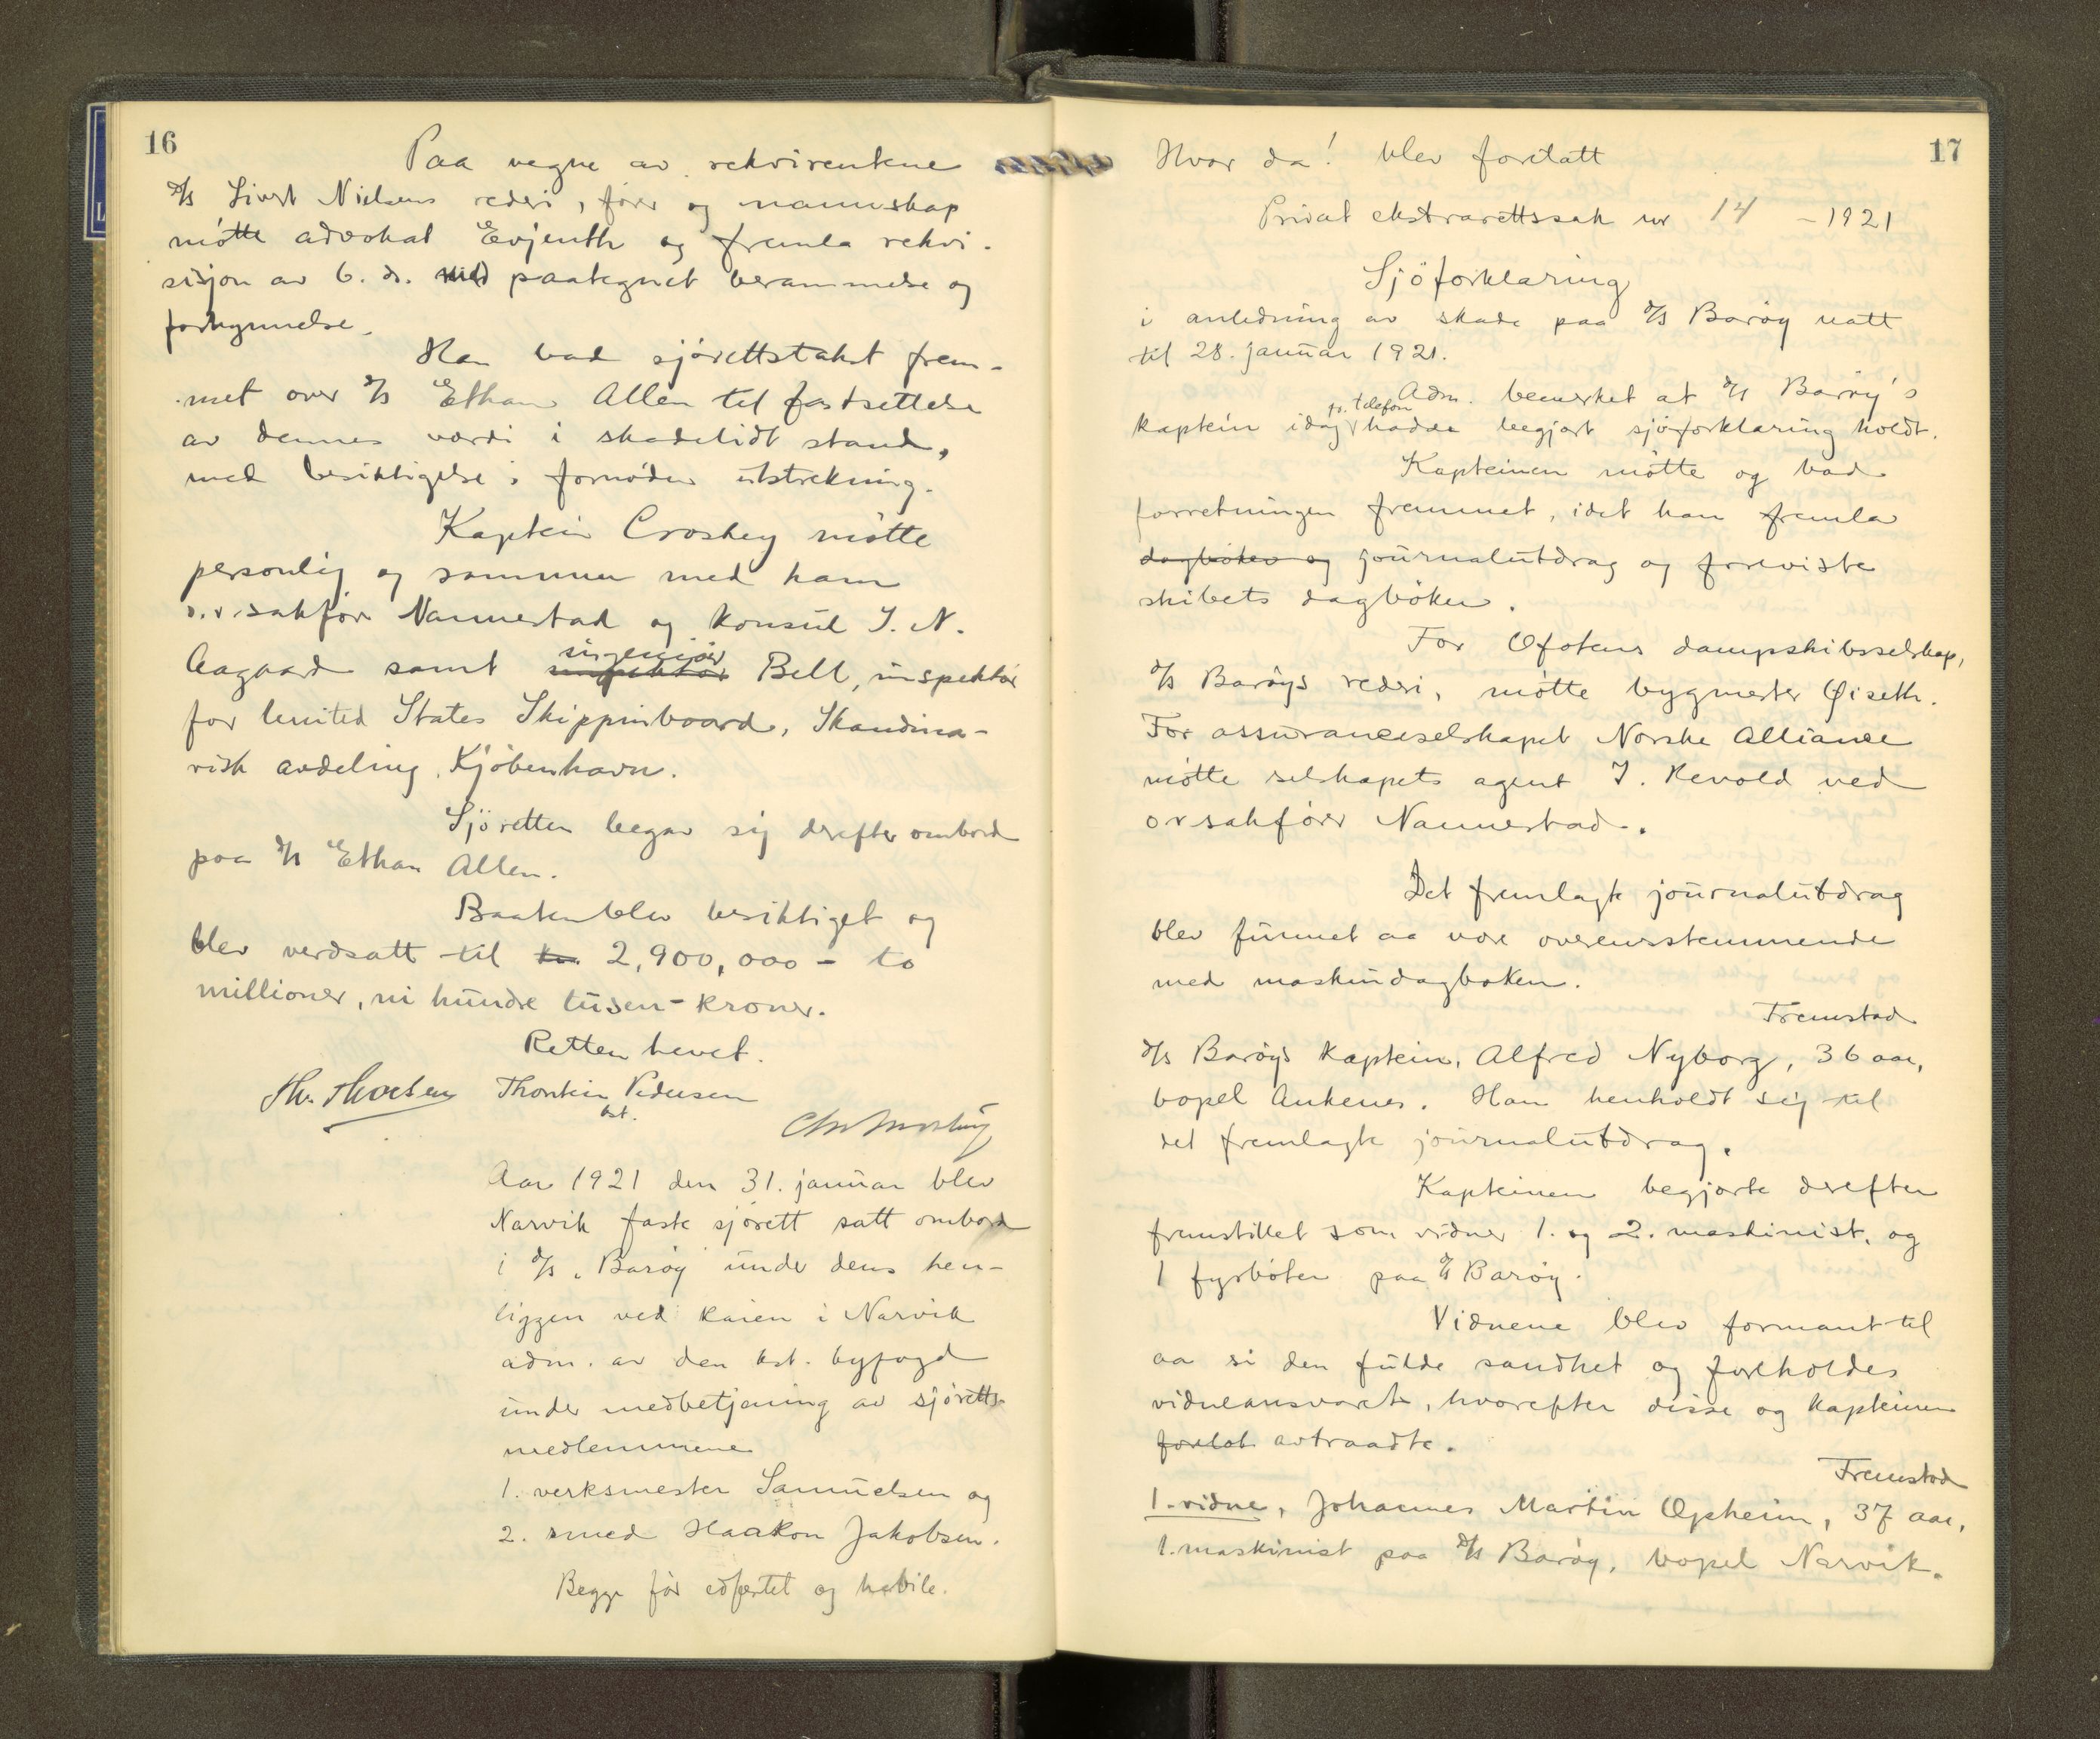 16
Paa vegne av rekvirentene
d/s Sivert Nielsens rederi, fører og mannskap
møtte advokat Evjenth og fremla rekvi-
sisjon av 6. ds. med paategnet berammelse og
forkynnelse.
Han bad sjörettstakst frem-
met over d/s Ethan Allen til fastsettelse
av dennes værdi i skadelidt stand,
med besiktigelse i fornöden utstrekning.
Kaptein Croskey mötte
personlig og sammen med ham
o.r.sakför Nannestad og konsul J. N.
Aagaard samt inspektör ingeniör Bell, inspektör
for United States Skippinboard, Skandina-
visk avdeling, Kjöbenhavn.
Sjöretten begav sig derefter ombord
paa d/s Ethan Allen.
Baaten blev besiktiget og
blev verdsatt til kr. 2,900,000 - to
millioner, ni hundre tusen - kroner.
Retten hevet.
Th. Thoesen Thorstein Pedersen
kst.
Aar 1921 den 31. januar blev
Narvik faste sjörett satt ombord
i d/s "Baröy" under dens hen-
liggen ved kaien i Narvik
adm. av den kst. byfogd
under medbetjening av sjöretts-
medlemmene
1. verksmester Samuelsen og
2. smed Haakon Jakobsen.
Begge för edfæstet og habile.
17
Hvor da! blev foretatt
Privat ekstrarettssak nr 14 - 1921
Sjöforklaring
i anledning av skade paa d/s Baröy natt
til 28. januar 1921.
Adm. bemerket at d/s Baröy's
kaptein idag pr. telefon hadde begjært sjöforklaring holdt.
Kapteinen mötte og bad
forretningen fremmet, idet han fremla
dagböker og journalutdrag og foreviste
skibets dagböker.
For Ofotens dampskibsselskap,
d/s Baröys rederi, mötte bygmester Øiseth.
For assuranceselskapet Norske Alliance
mötte selskapets agent J. Hevold ved
orsakförer Nannestad.
Det fremlagte journalutdrag
blev funnet aa være overensstemmende
med maskindagboken.
Fremstod
d/s Baröys kaptein, Alfred Nyborg, 36 aar,
bopel Ankenes. Han henholdt sig til
det fremlagte journalutdrag.
Kapteinen begjærte derefter
fremstillet som vidner 1. og 2. maskinist, og
1 fyrböter paa d/s Baröy.
Vidnene blev formant til
aa si den fulde sandhet og foreholdes
vidneansvaret, hvorefter disse og kapteinen
forlot avtraadte.
Fremstod
1. vidne, Johannes Martin Opheim, 37 aar,
1. maskinist paa d/s Baröy, bopel Narvik.